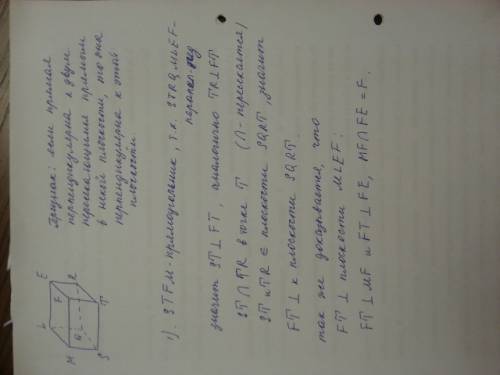 Признак: если прямая
перпендикулярна к двум
пересекающимся прямым
в некой плоскости, то она
перпендикулярна к этой
плоскости
E
R
L
F
T
M
Q
S
1). STFM - прямоугольник, т.к. STRQMLEF -
параллел-пед
значит ST⊥FT, аналогично TR⊥FT
ST∩TR в точке T (∩ - пересекается)
ST и TR ∈ плоскости SQRT, значит
FT ⊥ к плоскости SQRT.
так же доказывается, что
FT ⊥ плоскости MLEF:
FT ⊥ MF и FT ⊥ FE, MF∩FE = F.